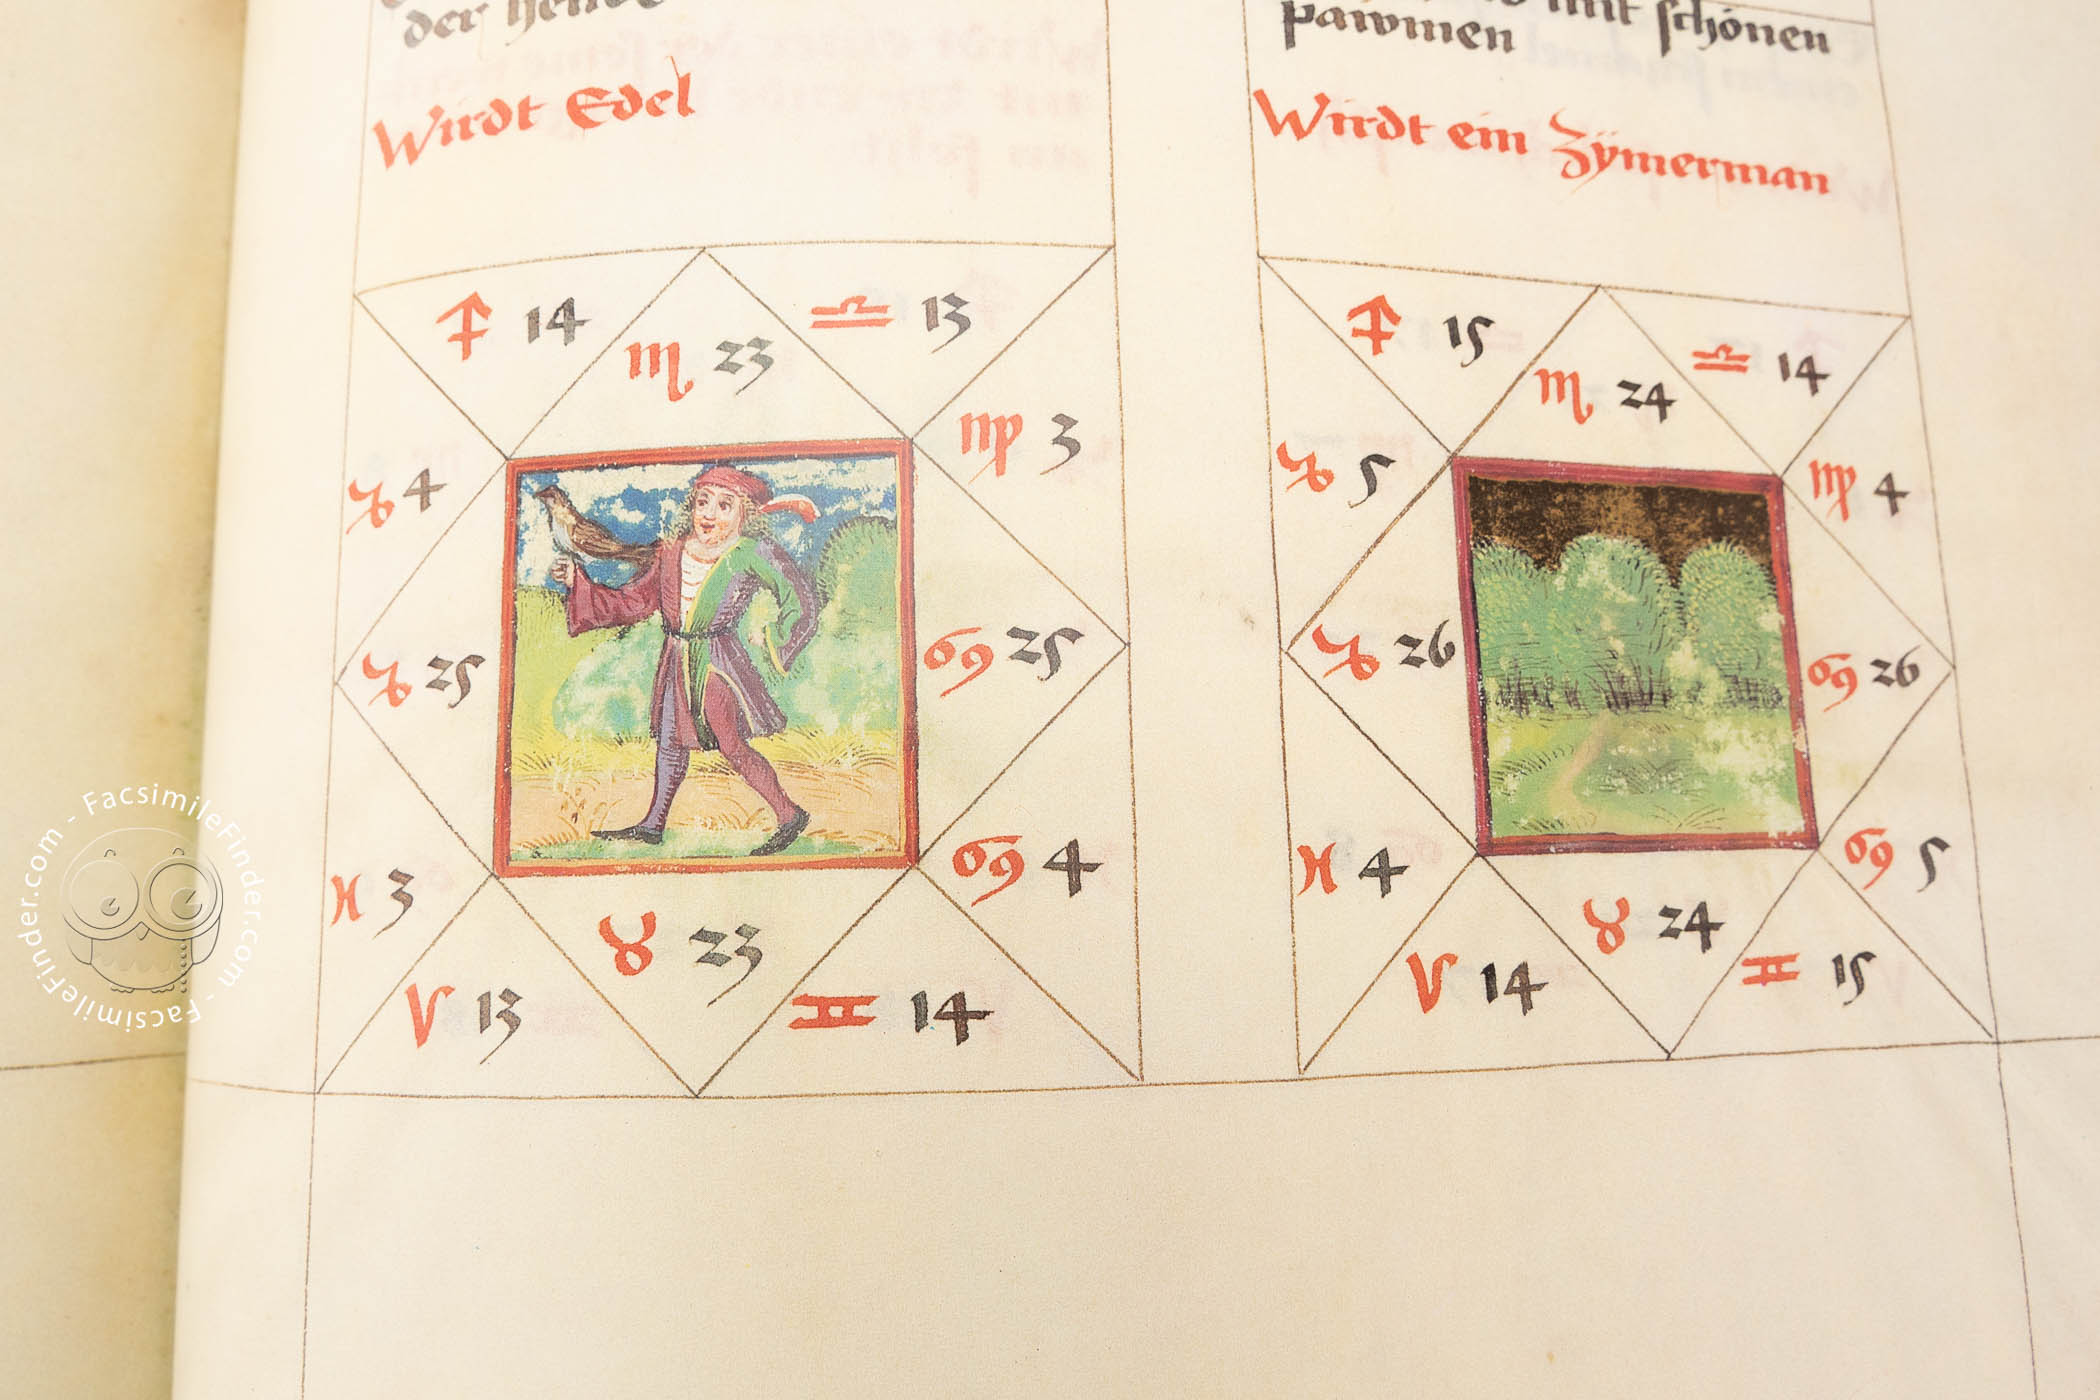 der hende
mit schönen
pawmen
Wirdt Edel
Wirdt ein Zÿmerman
♐ 14
♏ 23
♎ 13
♍ 3
♑ 4
♑ 25
♋ 25
♓ 3
♋ 4
♈ 13
♉ 23
♊ 14
♐ 15
♏ 24
♎ 14
♍ 4
♑ 5
♑ 26
♋ 26
♓ 4
♋ 5
♈ 14
♉ 24
♊ 15
FacsimileFinder.com - FacsimileFinder.com - FacsimileFinder.com -